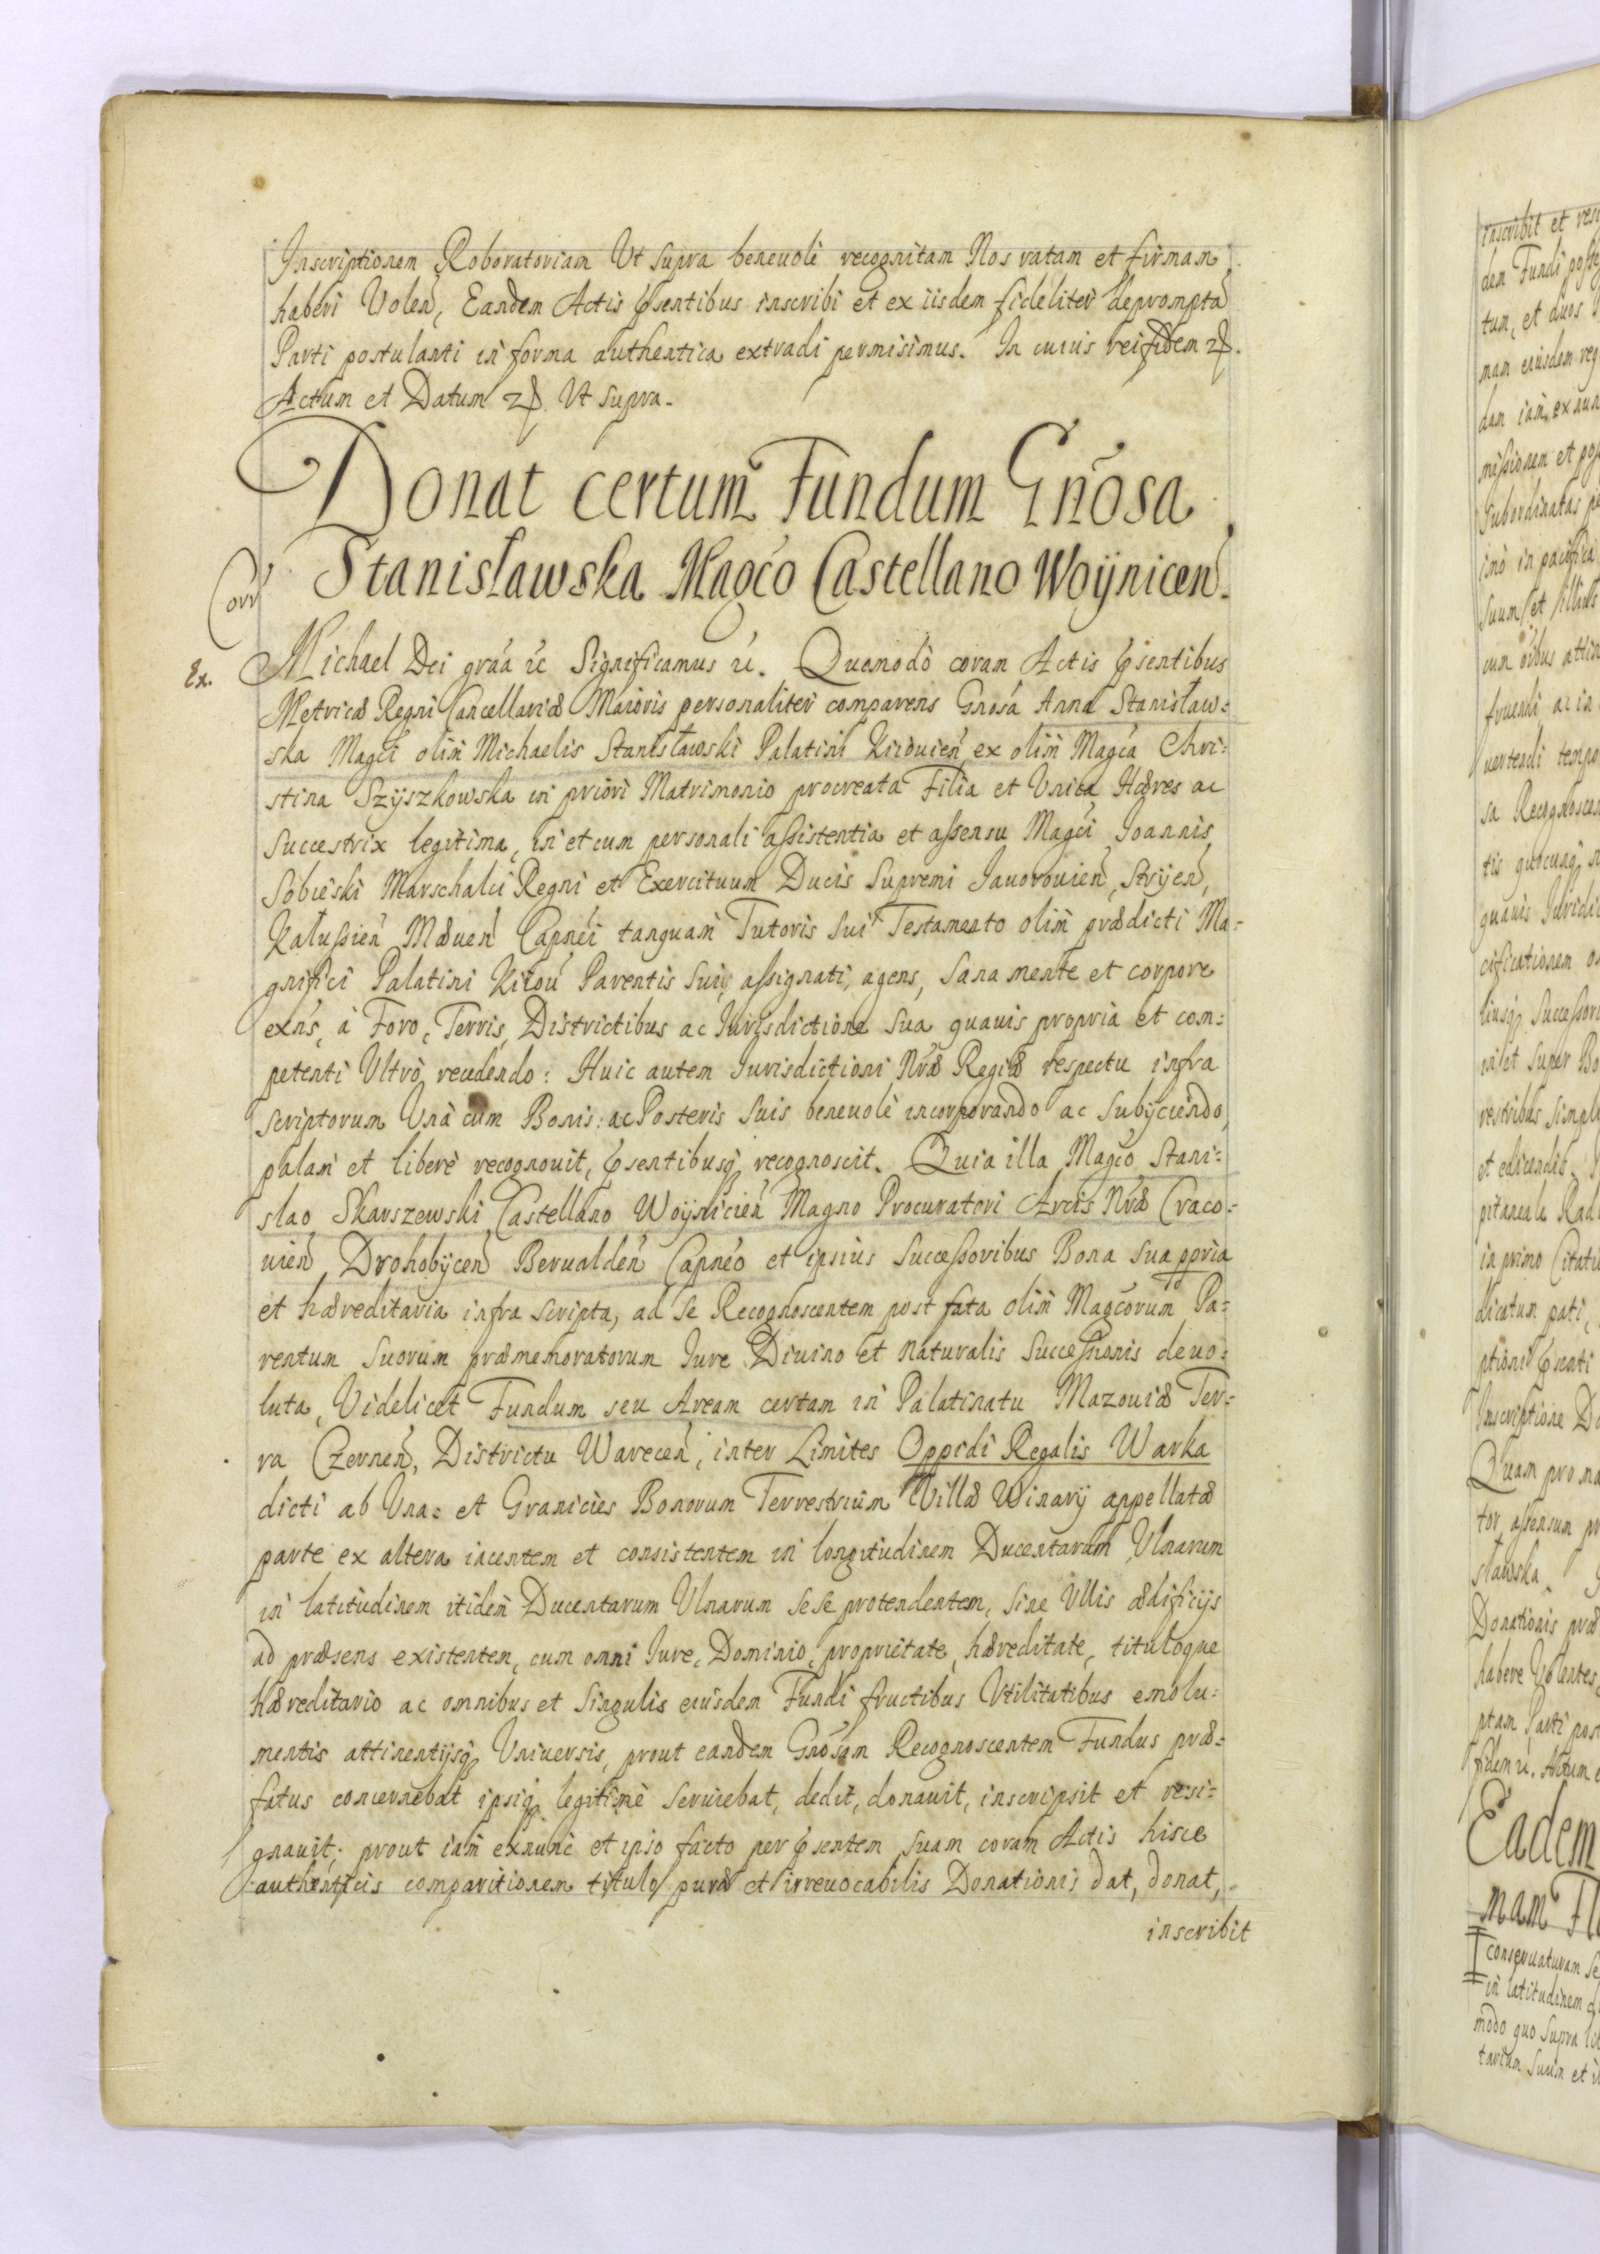 Inscriptionem Roboratoriam Vt supra beneuolè recognitam Nos ratam et firmam
haberi Volen, Eandem Actis psentibus inscribi et ex iisdem fideliter depromptã
Parti postulanti in forma authentica extradi permisimus. In cuius rei fidem
Actum et Datum Vt supra.
Donat certum Fundum Gnõsa
Stanisławska Magco Castellano Woÿnicen.
Corr
Ex.
Michael Dei gráa &c Significamus &c. Quomodò coram Actis psentibus
Metricæ Regni Cancellariæ Maioris personaliter comparens Gnosa Anna Stanisław=
ska Magci olim Michaelis Stanisławski Palatini Kiiouien ex olim Magca Chri=
stina Szÿszkowska in priori Matrimonio procreata Filia et Vnica Hæres ac
Successtrix legitima, in et cum personali assistentia et assensu Magci Joannis
Sobieski Marschalci Regni et Exercituum Ducis Supremi Jauorouien, Strÿen,
Kałussien Mæuen Capnei tanquam Tutoris sui Testamento olim prædicti Ma=
gnifici Palatini Kiiou Parentis sui, assignati, agens, sana mente et corpore
exns, à Foro, Terris, Districtibus ac Iurisdictione sua quauis propria et com=
petenti Vltrò recedendo: Huic autem Iurisdictioni Nræ Regiæ respectu infra
scriptorum Vnà cum Bonis ac Posteris suis beneuolè incorporando ac subÿciendo,
palam et liberè recognouit, psentibusq recognoscit. Quia illa Magco Stani=
slao Skarszewski Castellano Woÿnicien Magno Procuratori Arcis Nræ Craco=
uien Drohobÿcen Berualden Capneo et ipsius Successoribus Bona sua ppria
et hæreditaria infra scripta, ad se Recognoscentem post fata olim Magcorum Pa=
rentum suorum præmemoratorum Iure Diuino et naturalis Successionis deuo=
luta, Videlicet Fundum seu Aream certam in Palatinatu Mazouiæ Ter=
ra Czernen, Districtu Warecen, inter Limites Oppidi Regalis Warka
dicti ab Vna= et Granicies Bonorum Terrestrium Villæ Winarÿ appellatæ
parte ex altera iacentem et consistentem in longitudinem Ducentarum Vlnarum
in latitudinem itidem Ducentarum Vlnarum sese protendentem, sine Vllis ædificÿs
ad præsens existentem, cum omni Iure, Dominio, proprietate, hæreditate, tituloque
hæreditario ac omnibus et singulis eiusdem Fundi fructibus Vtilitatibus emolu=
mentis attinentÿsq Vniuersis, prout eandem Gnosam Recognoscentem Fundus præ=
fatus concernebat ipsiq legitimè seruiebat, dedit, donauit, inscripsit et resi=
gnauit, prout iam exnunc et ipso facto per psentem suam coram Actis hisce
authenticis comparitionem titulo puræ et irreuocabilis Donationis dat, donat,
inscribit